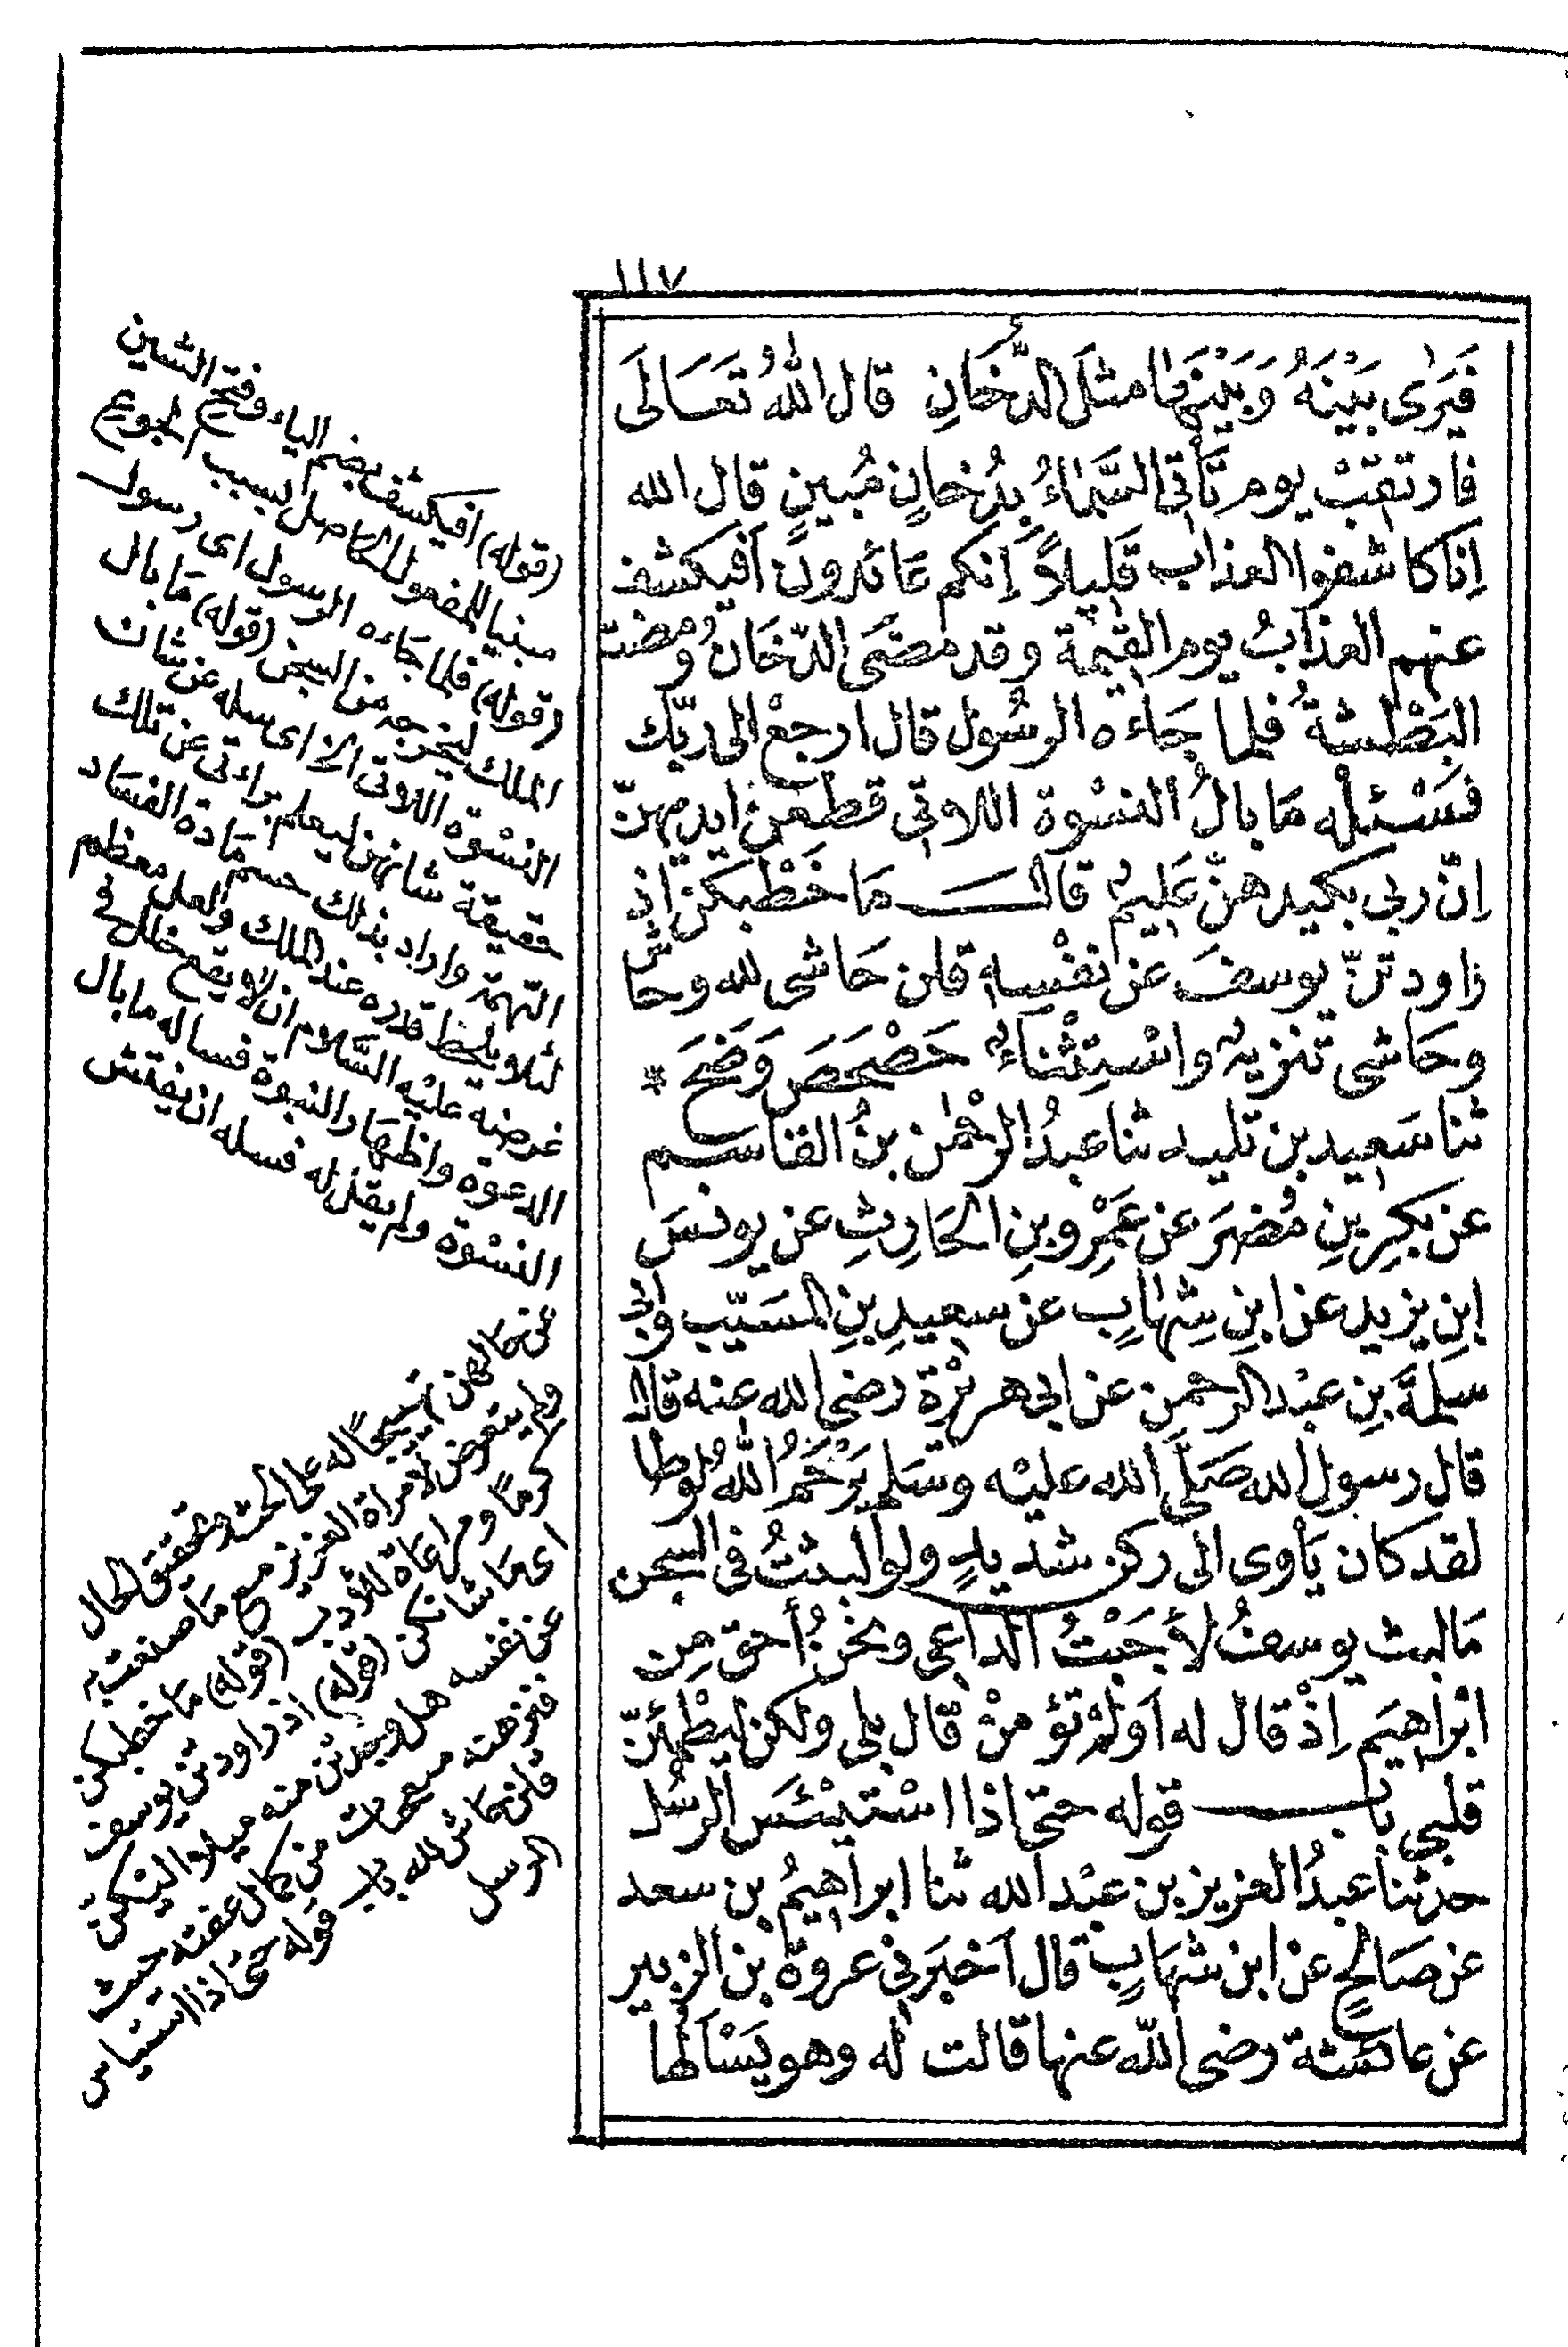 ١١٧
فَيَرٰى بَيْنَهُ وَبَيْنَهَا مثلَ الدُّخَانِ قال اللهُ تعَالَى
فارتقبْ يوم تَأتي السَّمَاءُ بِدُخانٍ مُبينٍ قال الله
اِنا كاشفوا العذاب قَليلاً اِنكم عَائدون اَفيكشف
عنهم العذابُ يوم القيٰمة وقد مضَى الدّخَانُ ومضت
البَطْشةُ فلما جَاءه الرسُول قال ارجعْ الى ربّك
فَسْئلْه مَا بالُ النسْوة اللاوتي قطعن ايديهنّ
اِنّ ربي بكيدهنّ عَليمٌ قال مَا خَطْبكن اِذ
راودتنّ يوسفَ عن نفْسِه قلن حَاشى لله وحاش
وحَاشى تنزيهٌ واسْتِثْنَاءٌ حَصْحَصَ وَضَحَ *
ثنا سَعِيد بن تليد ثنا عبدُ الرحْمٰن بنُ القاسم
عن بكرِ بنِ مُضَرَ عن عَمْرِو بنِ الحَارِثِ عن يونسَ
ابنِ يزيد عن ابنِ شِهَابٍ عن سعيدِ بنِ المسَيّب وابى
سلمةَ بنِ عبْد الرحمنِ عن ابى هريْرة رضى الله عنه قال
قال رسول الله صَلّى الله عليْه وسَلم يَرْحَمُ اللهُ لوطا
لقد كان يَأوى الى ركن شديدٍ ولو لبثتُ فى السجن
مَا لبث يوسفُ لأَجَبْتُ الداعى ونحنُ أحق مِن
ابْراهيم اِذْ قال له اَولمْ تؤمنْ قال بلى ولكن ليطْمئنّ
قلبي باب قوله حتى اذا اسْتيْئَس الرسُل
حدثنا عبدُ العزيز بن عبْد الله ثنا ابراهيمُ بن سعد
عن صَالحٍ عن ابن شهَابٍ قال اَخبَرني عروة بن الزبير
عن عائشة رضى الله عنها قالت له وهو يَسْاَلها
(قوله) افيكشف بضم الياء وفتح الشين
مبنيا للمفعول الحاصل بسبب الجوع
(قوله) فلما جَاءه الرسول اى رسول
الملك ليخرجه من السجن (قوله) مَا بال
النسْوة اللاوتي الخ اى سله عن شان
حقيقة شانهن ليعلم براءتي عن تلك
التهمة واراد بذلك حسم مَادة الفسَاد
لئلا ينحط قدره عند الملك ولعل معظم
غرضه عليْه السَّلام ان لا يقع خلل في
الدعوة واظهَار النبوة فساله ما بال
النسْوة ولم يقل له فسله ان يفتش
عن حالهن تهييجًا له على البحث وتحقيق الحال
ولم يتعرض لامراة العزيز مع مَا صنعت به
كرمًا ومراعَاة للأدب (قوله) مَا خطبكن
اى مَا شانكن (قوله) اذ راودتن يوسف
عن نفسه هل وجدتن منه ميلا اليكن
فنزهنه متعجبات من كمال عفته حيث
قلن حَاش لله باب قوله حتى اذا استياس
الرسل